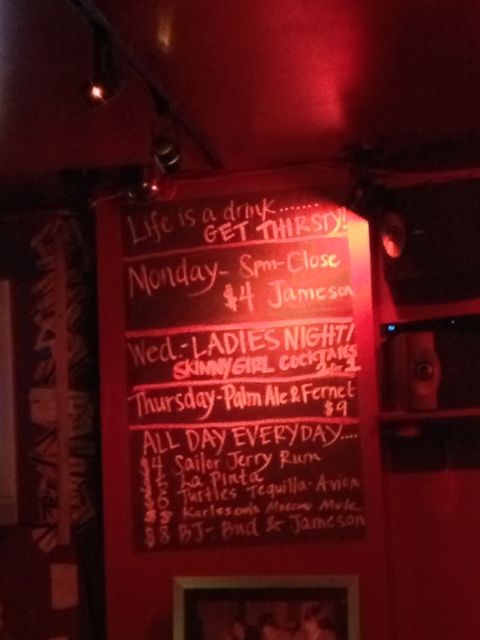 Life is a drink.......
GET THIRSTY!
Monday- 8pm-Close
$4 Jameson
Wed.-LADIES NIGHT!
SKINNYGIRL COCKTAILS
2-1
Thursday-Palm Ale & Fernet
$9
ALL DAY EVERYDAY....
$4 Sailor Jerry Rum
La Pinta
Turtles Tequilla-Avion
Karlssons Moscow Mule
$8 BJ- Bud & Jameson